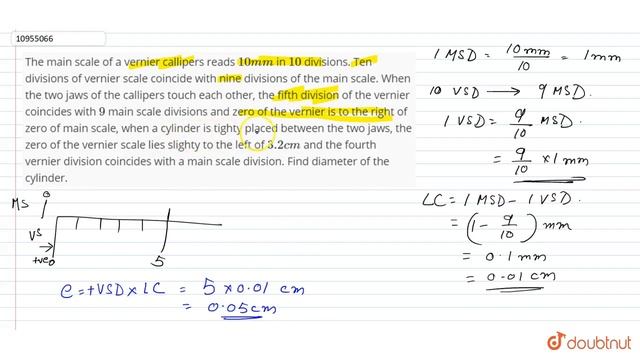 10955066
The main scale of a vernier callipers reads 10mm in 10 divisions. Ten
divisions of vernier scale coincide with nine divisions of the main scale. When
the two jaws of the callipers touch each other, the fifth division of the vernier
coincides with 9 main scale divisions and zero of the vernier is to the right of
zero of main scale, when a cylinder is tighty placed between the two jaws, the
zero of the vernier scale lies slighty to the left of 3.2cm and the fourth
vernier division coincides with a main scale division. Find diameter of the
cylinder.
MS 0
VS
+ve 0 5
e = +VSD × LC = 5 × 0.01 cm
= 0.05cm
1 MSD = 10mm/10 = 1mm
10 VSD → 9 MSD.
1 VSD = 9/10 MSD
= 9/10 × 1 mm
LC = 1 MSD - 1 VSD.
= (1 - 9/10) mm
= 0.1 mm
= 0.01 cm
doubtnut